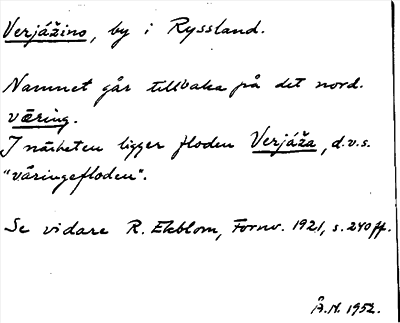 Verjážino, by i Ryssland.
Namnet går tillbaka på det nord.
væring.
I närheten ligger floden Verjáža, d.v.s.
"väringefloden".
Se vidare R. Ekblom, Fornv. 1921, s. 240 ff.
Å.H. 1952.